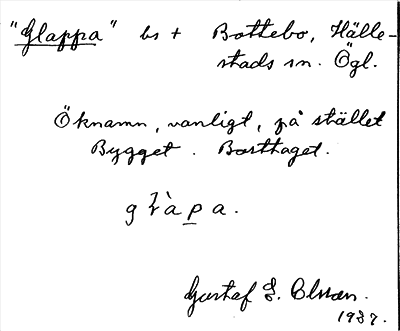 "Glappa" bs + Bottebo, Hälle-
stads sn. Ögl.
Öknamn, vanligt, på stället
Bygget. Borttaget.
g l à p a.
Gustaf E. Olsson.
1937.